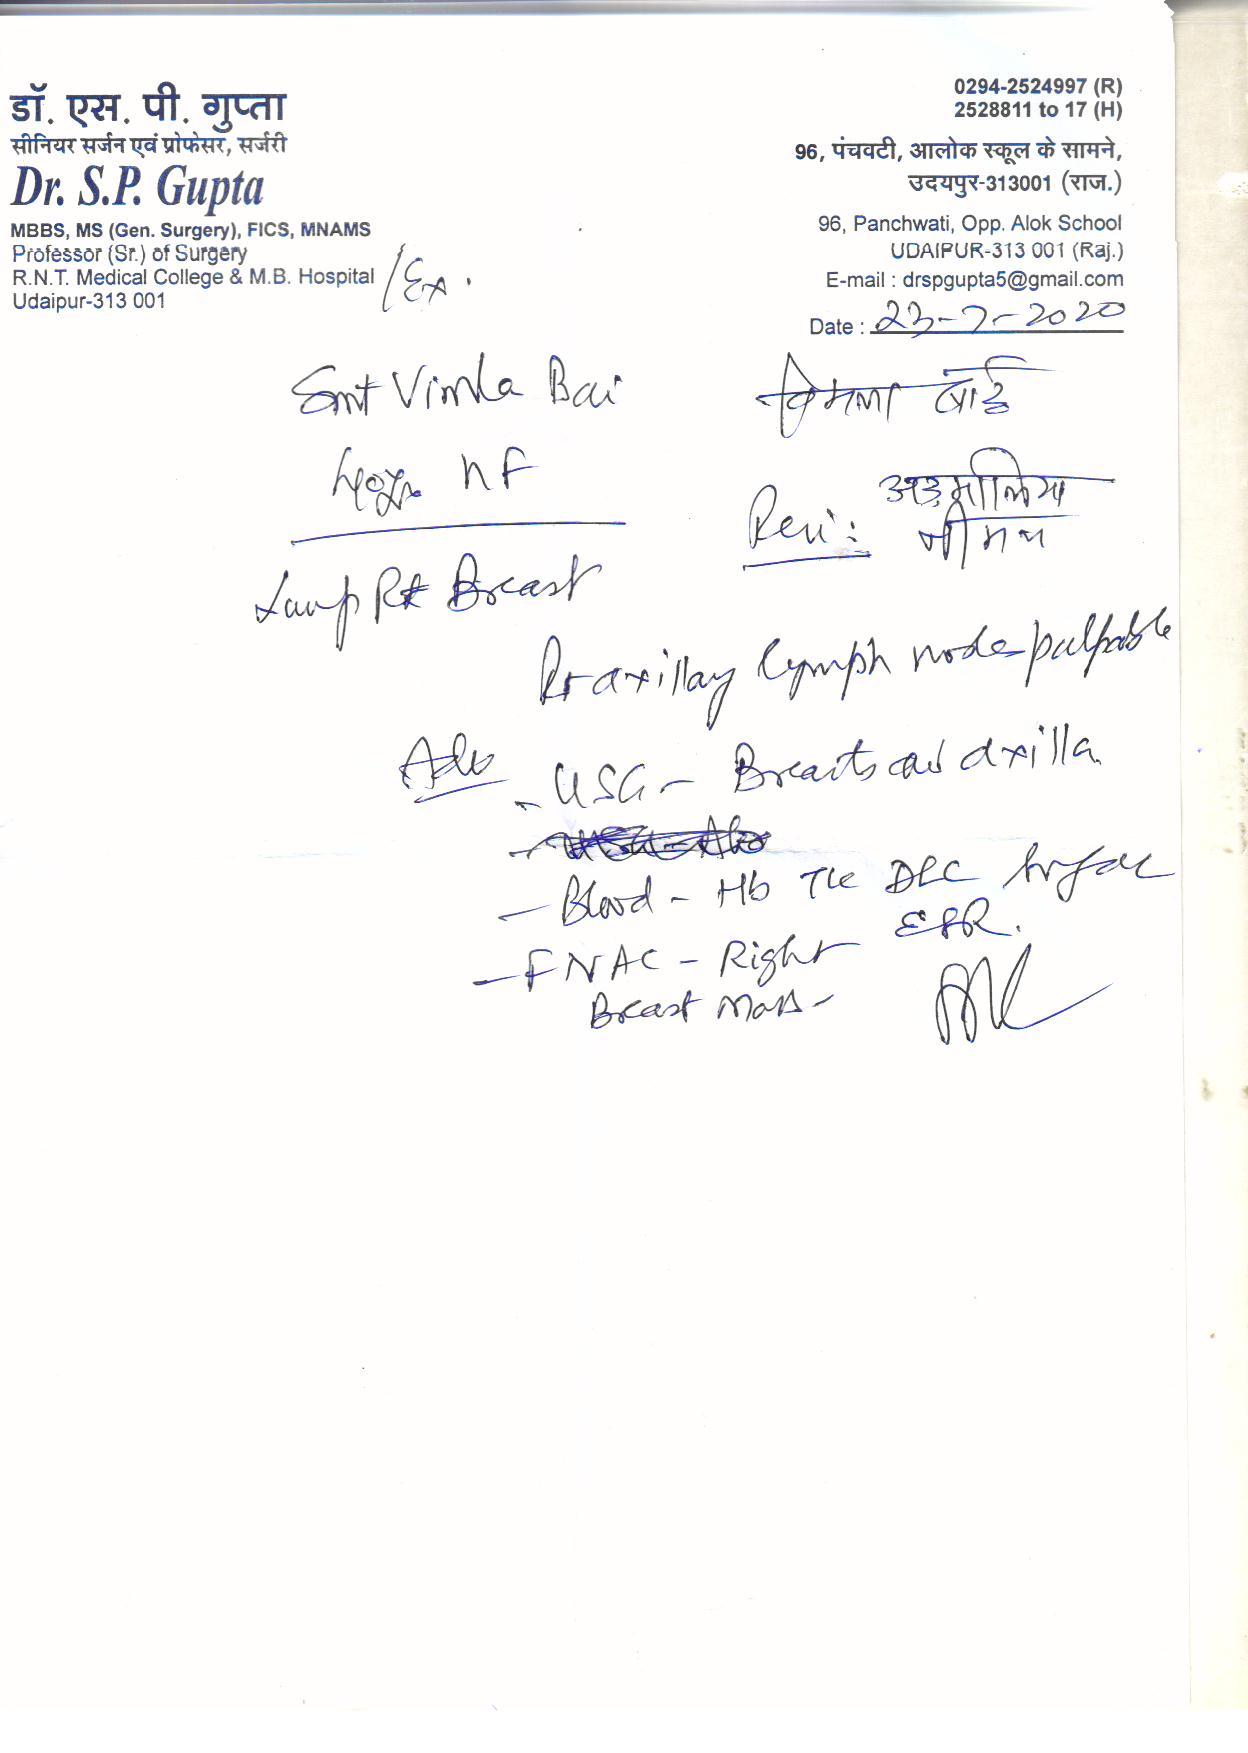 डॉ. एस. पी. गुप्ता
सीनियर सर्जन एवं प्रोफेसर, सर्जरी
Dr. S.P. Gupta
MBBS, MS (Gen. Surgery), FICS, MNAMS
Professor (Sr.) of Surgery
R.N.T. Medical College & M.B. Hospital /Ex.
Udaipur-313 001
0294-2524997 (R)
2528811 to 17 (H)
96, पंचवटी, आलोक स्कूल के सामने,
उदयपुर-313001 (राज.)
96, Panchwati, Opp. Alok School
UDAIPUR-313 001 (Raj.)
E-mail : drspgupta5@gmail.com
Date : 23-7-2020
Smt Vimla Bai विमला बाई
Lump Rt Breast
Rt axillay lymph node palpable
Adv
- USG - Breasts and axilla
- Blood - Hb TLC DLC
ESR.
- FNAC - Right
Breast Mass -